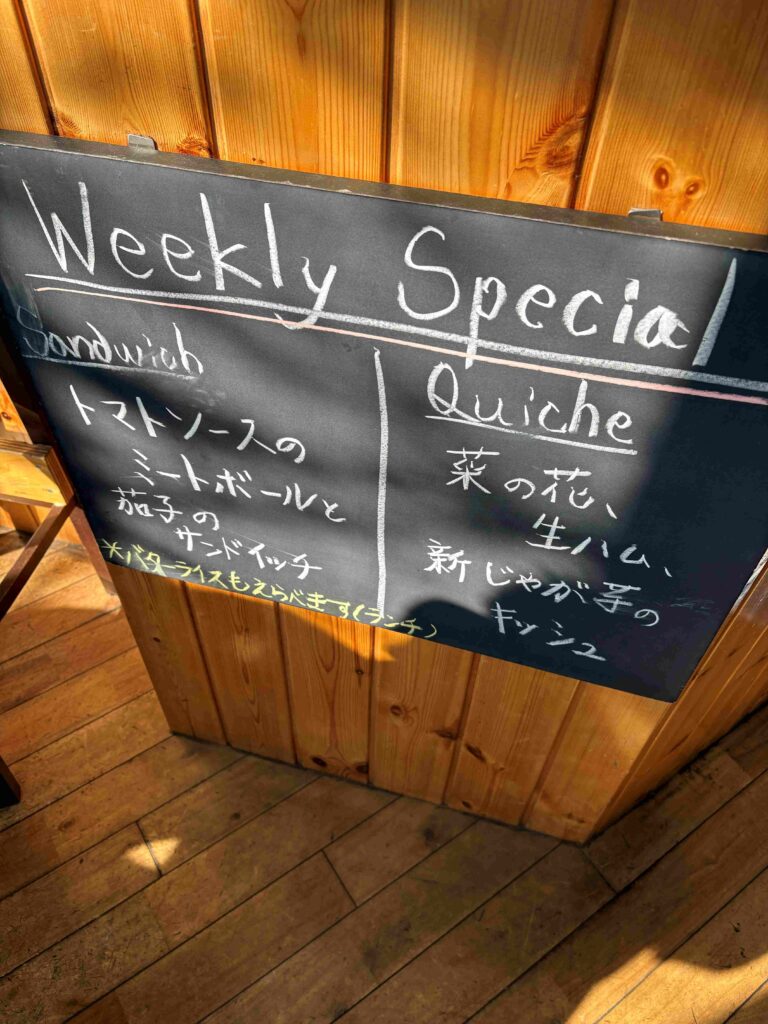 Weekly Special
Sandwich
トマトソースの
ミートボールと
茄子の
サンドイッチ
※バターライスもえらべます(ランチ)
Quiche
菜の花、
生ハム、
新じゃが芋の
キッシュ